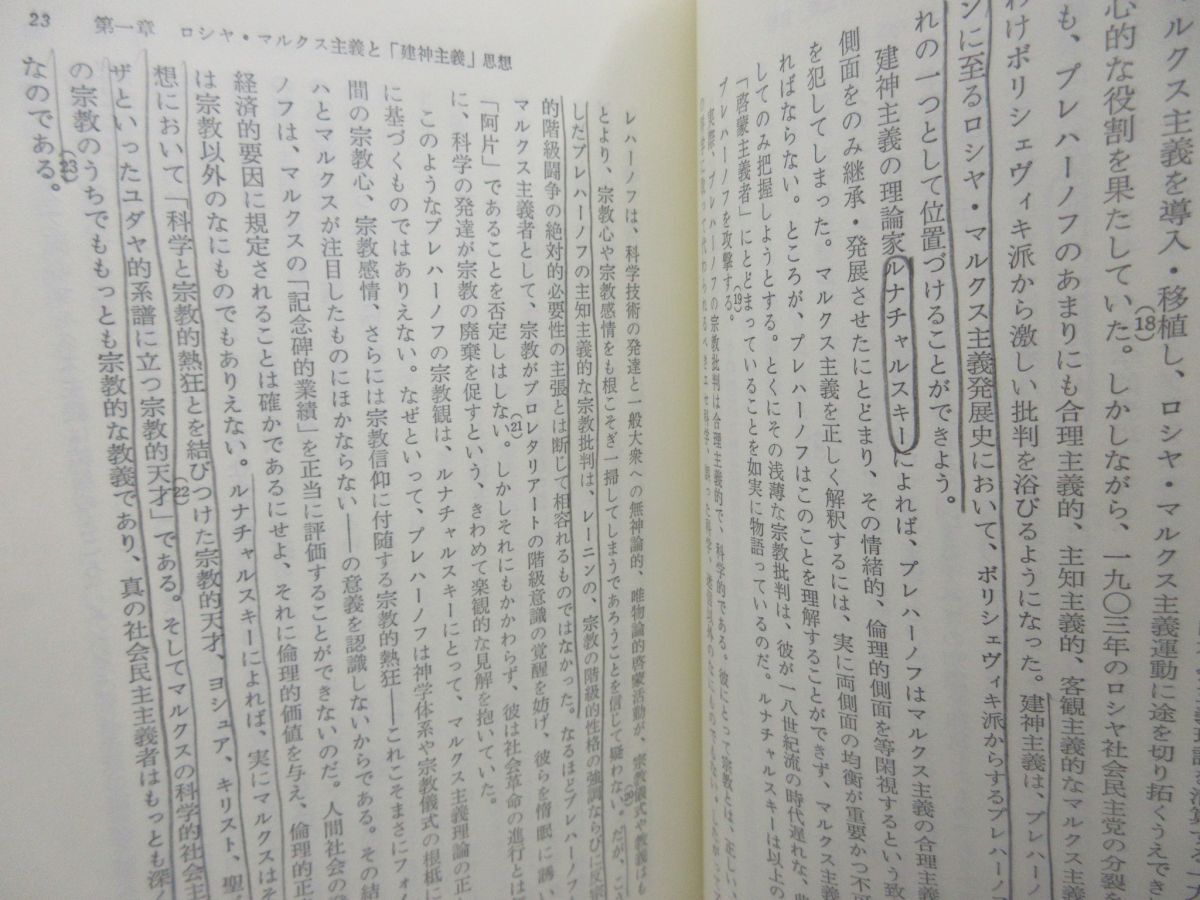 ルクス主義を導入・移植し、ロシヤ・マルクス主義運動に途を切り拓くうえで
心的な役割を果たしていた。(18)しかしながら、一九〇三年のロシヤ社会民主党の分裂を
も、プレハーノフのあまりにも合理主義的、主知主義的、客観主義的なマルクス主義
わけボリシェヴィキ派から激しい批判を浴びるようになった。建神主義は、プレハーノ
ンに至るロシヤ・マルクス主義発展史において、ボリシェヴィキ派からするプレハーノ
れの一つとして位置づけることができよう。
建神主義の理論家ルナチャルスキーによれば、プレハーノフはマルクス主義の合理主義
側面をのみ継承・発展させたにとどまり、その情緒的、倫理的側面を等閑視するという致
を犯してしまった。マルクス主義を正しく解釈するには、実に両側面の均衡が重要かつ不
ればならない。ところが、プレハーノフはこのことを理解することができず、マルクス主義
してのみ把握しようとする。とくにその浅薄な宗教批判は、彼が一八世紀流の時代遅れな、
「啓蒙主義者」にとどまっていることを如実に物語っているのだ。ルナチャルスキーは以上の
プレハーノフを攻撃する。(19)
実際、プレハーノフの宗教批判は合理主義的で、科学的である。彼にとって宗教とは、正しい
23 第一章 ロシヤ・マルクス主義と「建神主義」思想
レハーノフは、科学技術の発達と一般大衆への無神論的、唯物論的啓蒙活動が、宗教儀式や教義はも
とより、宗教心や宗教感情をも根こそぎ一掃してしまうであろうことを信じて疑わない。(20)だが、こ
したプレハーノフの主知主義的な宗教批判は、レーニンの、宗教の階級的性格の強調ならびに反宗
的階級闘争の絶対的必要性の主張とは断じて相容れるものではなかった。なるほどプレハーノフ
マルクス主義者として、宗教がプロレタリアートの階級意識の覚醒を妨げ、彼らを惰眠に誘い
「阿片」であることを否定しはしない。(21)しかしそれにもかかわらず、彼は社会革命の進行とは
に、科学の発達が宗教の廃棄を促すという、きわめて楽観的な見解を抱いていた。
このようなプレハーノフの宗教観は、ルナチャルスキーにとって、マルクス主義理論の正
に基づくものではありえない。なぜといって、プレハーノフは神学体系や宗教儀式の根柢に
間の宗教心、宗教感情、さらには宗教信仰に付随する宗教的熱狂――これこそまさにフォイ
ハとマルクスが注目したものにほかならない――の意義を認識しないからである。その結
ノフは、マルクスの「記念碑的業績」を正当に評価することができないのだ。人間社会の
経済的要因に規定されることは確かであるにせよ、それに倫理的価値を与え、倫理的正
は宗教以外のなにものでもありえない。ルナチャルスキーによれば、実にマルクスはそ
想において「科学と宗教的熱狂とを結びつけた宗教的天才、ヨシュア、キリスト、聖
ザといったユダヤ的系譜に立つ宗教的天才」(22)である。そしてマルクスの科学的社会主
の宗教のうちでももっとも宗教的な教義であり、真の社会民主主義者はもっとも深く
なのである。(23)